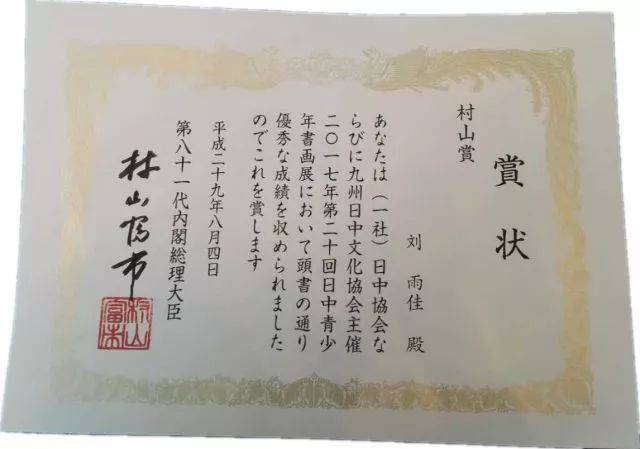 賞状
村山賞
刘雨佳 殿
あなたは（一社）日中協会な
らびに九州日中文化協会主催
二〇一七年第二十回日中青少
年書画展において頭書の通り
優秀な成績を収められました
のでこれを賞します
平成二十九年八月四日
第八十一代内閣総理大臣
村山富市
村山富市